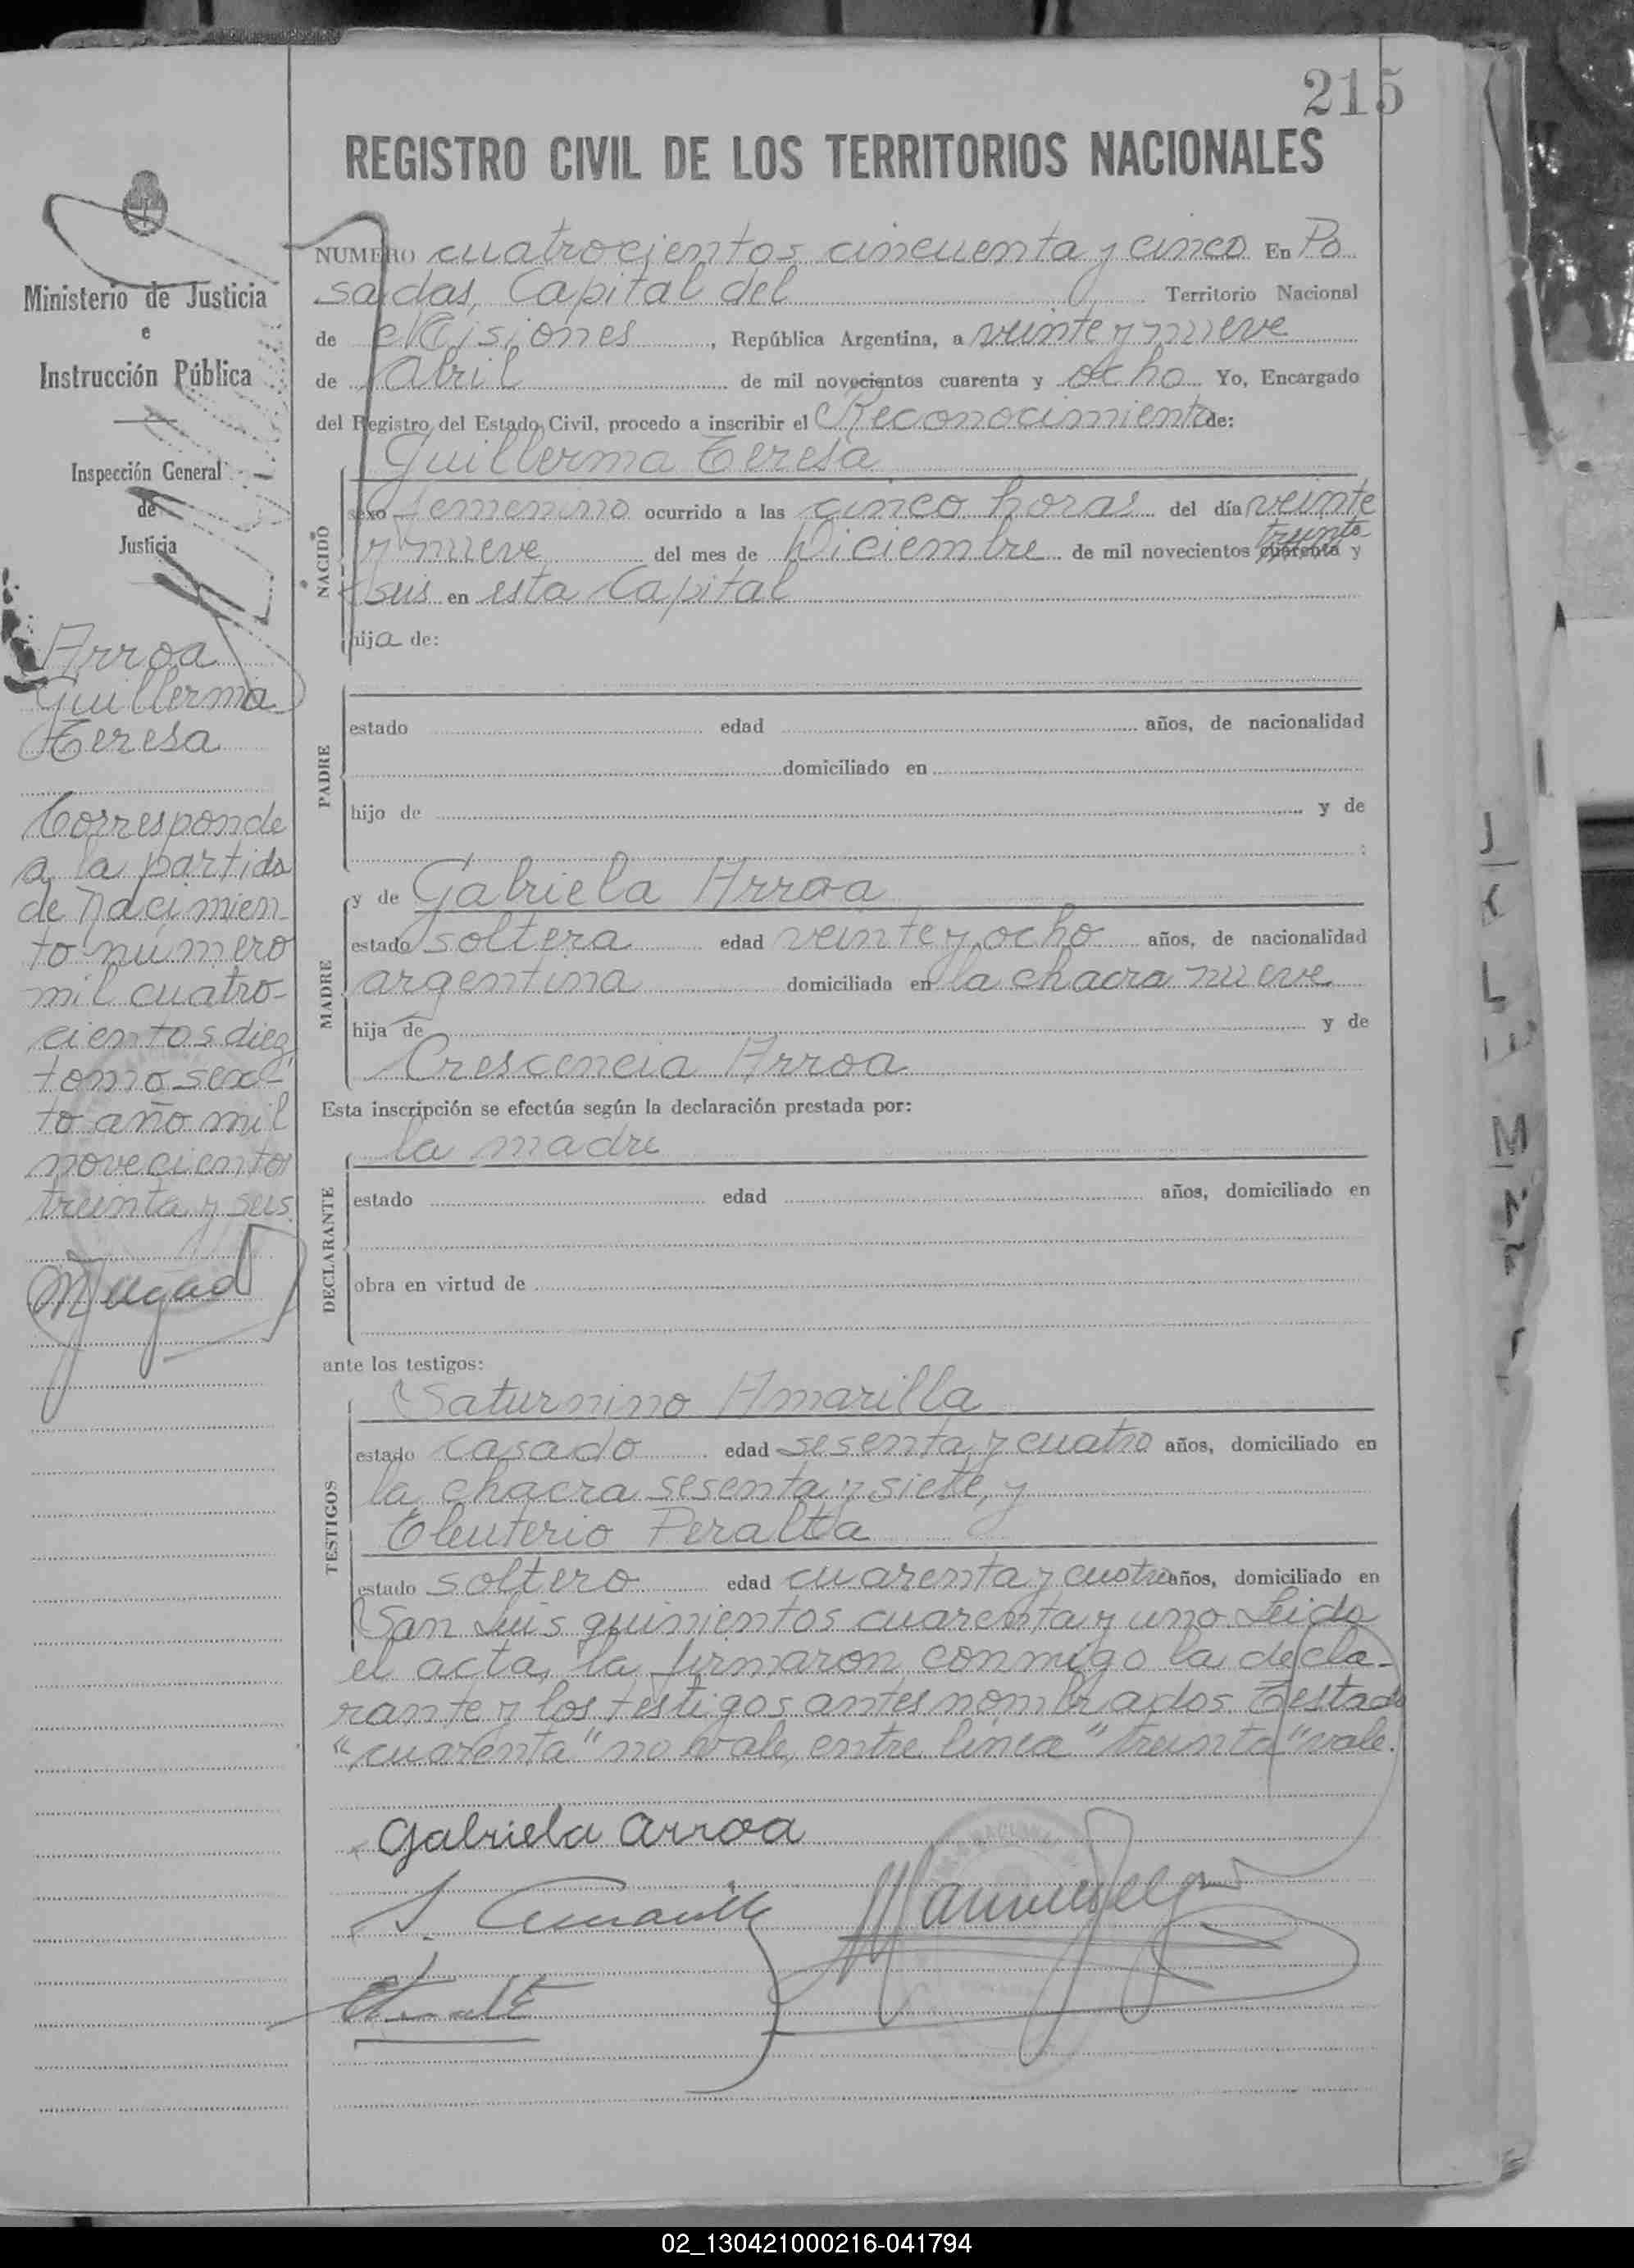 215
REGISTRO CIVIL DE LOS TERRITORIOS NACIONALES
Ministerio de Justicia
e
Instrucción Pública
Inspección General
de
Justicia
Arroa
Guillerma
Teresa
Corresponde
a la partida
de Nacimien
to número
mil cuatro-
cientos diez
tomo sex-
to año mil
novecientos
treinta y seis
NUMERO cuatrocientos cincuenta y cinco En Po
sadas, Capital del Territorio Nacional
de Misiones, República Argentina, a veinte y nueve
de Abril de mil novecientos cuarenta y ocho Yo, Encargado
del Registro del Estado Civil, procedo a inscribir el Reconocimiento de:
Guillerma Teresa
NACIDO
sexo femenino ocurrido a las cinco horas del día veinte
treinta
y nueve del mes de Diciembre de mil novecientos cuarenta y
seis en esta Capital
hija de:
PADRE
estado edad años, de nacionalidad
domiciliado en
hijo de y de
:
MADRE
y de Gabriela Arroa
estado soltera edad veinte y ocho años, de nacionalidad
argentina domiciliada en la chacra nueve
hija de y de
Crescencia Arroa
Esta inscripción se efectúa según la declaración prestada por:
la madre
DECLARANTE
estado edad años, domiciliado en
obra en virtud de
ante los testigos:
TESTIGOS
Saturnino Amarilla
estado casado edad sesenta y cuatro años, domiciliado en
la chacra sesenta y siete, y
Eleuterio Peralta
estado soltero edad cuarenta y cuatro años, domiciliado en
San Luis quinientos cuarenta y uno. Leida
el acta, la firmaron conmigo la decla-
rante y los testigos antes nombrados. Testado
"cuarenta" no vale, entre línea "treinta" vale.
Gabriela Arroa
J
K
L
M
N
02_130421000216-041794